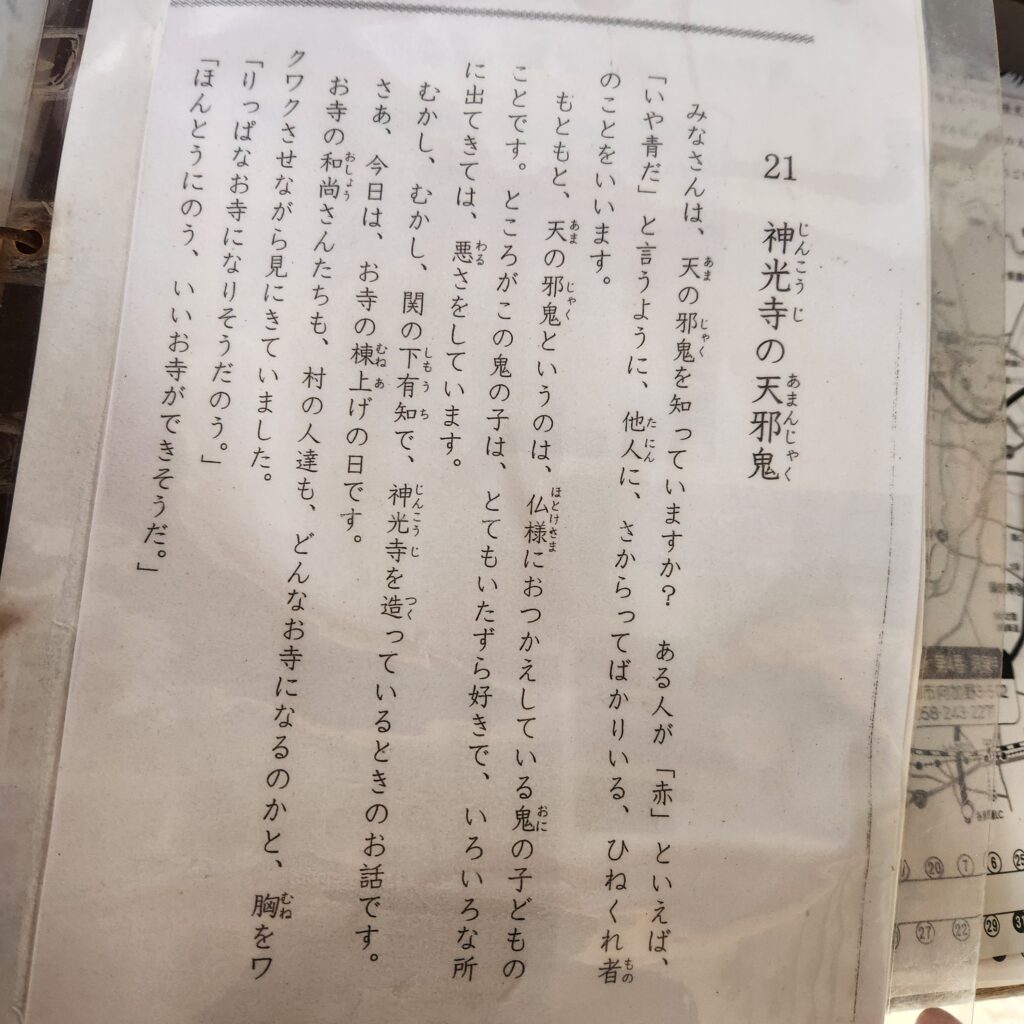 21 神光寺の天邪鬼
じんこうじ
あまんじゃく
みなさんは、天の邪鬼を知っていますか？ ある人が「赤」といえば、
あま じゃく
「いや青だ」と言うように、他人に、さからってばかりいる、ひねくれ者
たにん もの
のことをいいます。
もともと、天の邪鬼というのは、仏様におつかえしている鬼の子どもの
あま じゃく ほとけさま おに
ことです。ところがこの鬼の子は、とてもいたずら好きで、いろいろな所
に出てきては、悪さをしています。
わる
むかし、むかし、関の下有知で、神光寺を造っているときのお話です。
しもうち じんこうじ つく
さあ、今日は、お寺の棟上げの日です。
むねあ
お寺の和尚さんたちも、村の人達も、どんなお寺になるのかと、胸をワ
おしょう むね
クワクさせながら見にきていました。
「りっぱなお寺になりそうだのう。」
「ほんとうにのう、いいお寺ができそうだ。」
058-243-227
⑳ ⑦ ⑥ ㉕
㉗ ㉒ ㉙